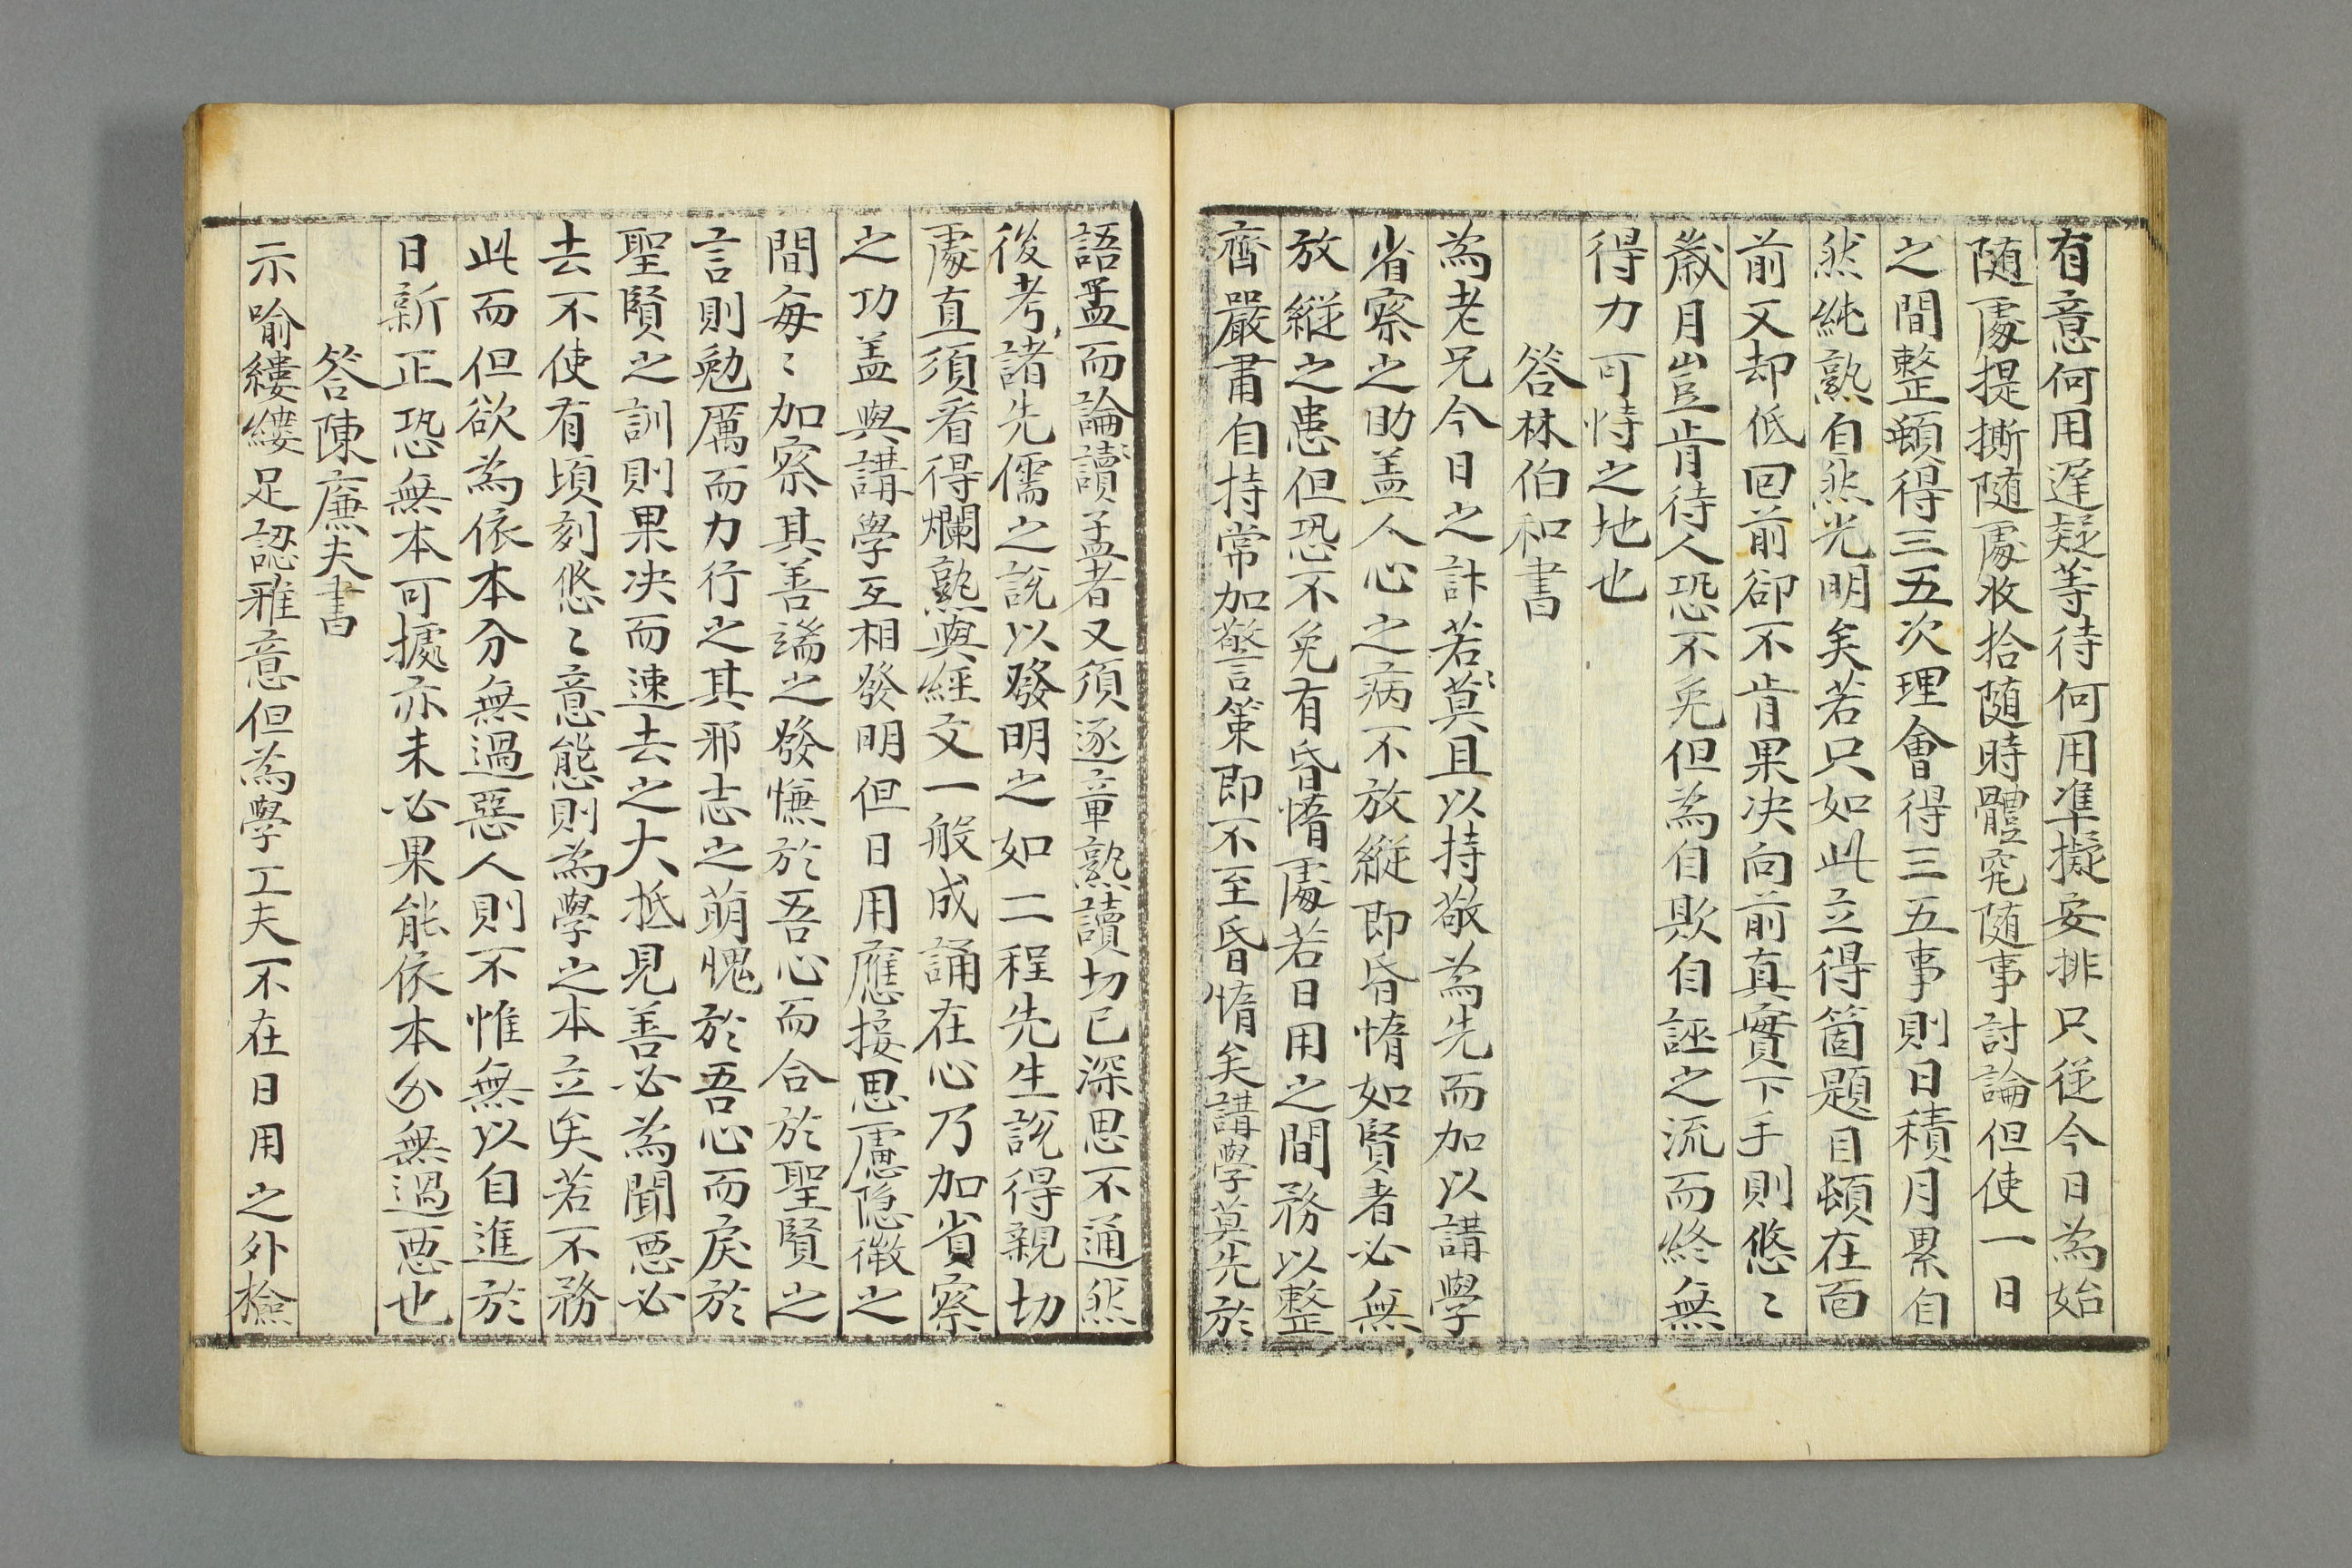 有意何用遅疑等待何用準擬安排只從今日為始
随處提撕随處收拾随時體究随事討論但使一日
之間整頓得三五次理會得三五事則日積月累自
然純熟自然光明矣若只如此立得箇題目頓在面
前又却低回前卻不肯果决向前真實下手則悠〻
歲月豈肯待人恐不免但為自欺自誣之流而終無
得力可恃之地也
答林伯和書
為老兄今日之計若莫且以持敬為先而加以講學
省察之助盖人心之病不放縱即昏惰如賢者必無
放縱之患但恐不免有昏惰處若日用之間務以整
齊嚴肅自持常加警策即不至昏惰矣講學莫先於
語孟而論讀孟者又須逐章熟讀切已深思不通然
後考諸先儒之說以發明之如二程先生說得親切
處直須看得爛熟與經文一般成誦在心乃加省察
之功盖與講學互相發明但日用應接思慮隐微之
間每〻加察其善端之發慊於吾心而合於聖賢之
言則勉厲而力行之其邪志之萌愧於吾心而戾於
聖賢之訓則果决而速去之大抵見善必為聞悪必
去不使有頃刻悠〻意態則為學之本立矣若不務
此而但欲為依本分無過惡人則不惟無以自進於
日新正恐無本可據亦未必果能依本分無過悪也
答陳廉夫書
示喻縷縷足認雅意但為學工夫不在日用之外檢